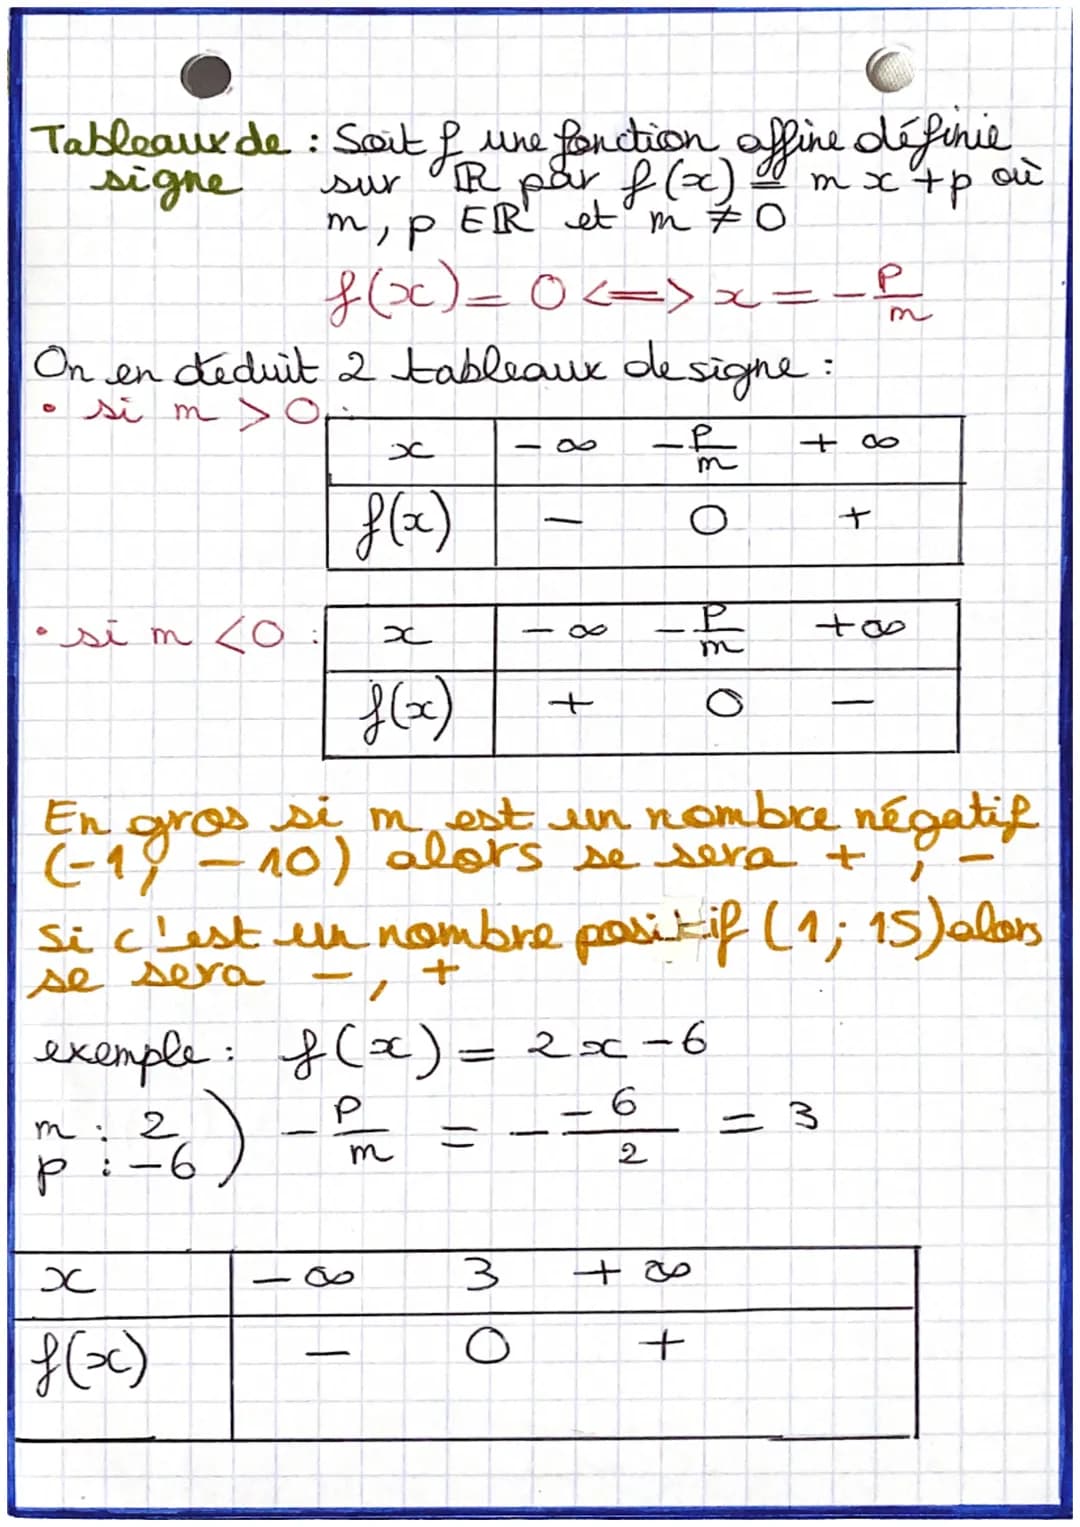 Tableaux de : Soit f une fonction affine définie
signe sur ℝ par f(x) = mx+p où
m, p ∈ ℝ et m ≠ 0
f(x) = 0 <=> x = -p/m
On en déduit 2 tableaux de signe :
• si m > 0 :
x -∞ -p/m +∞
f(x) - 0 +
• si m < 0 :
x -∞ -p/m +∞
f(x) + 0 -
En gros si m est un nombre négatif
(-1, -10) alors se sera +, -
si c'est un nombre positif (1; 15) alors
se sera -, +
exemple : f(x) = 2x-6
m : 2
p : -6 ) -p/m = - -6/2 = 3
x -∞ 3 +∞
f(x) - 0 +